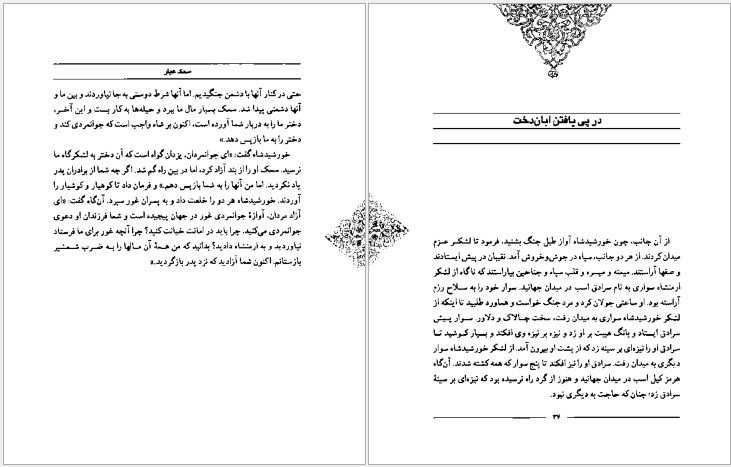 سمک عیار
حتی در کنار آنها با دشمن جنگیدیم. اما آنها شرط دوستی به جا نیاوردند و بین ما و
آنها دشمنی پیدا شد. سمک بسیار مال ما ببرد و حیله‌ها به کار بست و این آخر،
دختر ما را به دربار شما آورده است، اکنون بر شاه واجب است که جوانمردی کند و
دختر را به ما بازپس دهد.»
خورشیدشاه گفت: «ای جوانمردان، یزدان گواه است که آن دختر به لشکرگاه ما
نرسید. سمک او را از بند آزاد کرد، اما در بین راه گم شد. اگر چه شما از برادران پدر
یاد نکردید. اما من آنها را به شما بازپس دهم.» و فرمان داد تا کوهیار و کوشیار را
آوردند. خورشیدشاه هر دو را خلعت داد و به پسران غور سپرد. آن‌گاه گفت: «ای
آزاد مردان، آوازهٔ جوانمردی غور در جهان پیچیده است و شما فرزندان او دعوی
جوانمردی می‌کنید. چرا باید در امانت خیانت کنید؟ چرا آنچه غور برای ما فرستاد
نیاوردید و به ارمنشاه دادید؟ بدانید که من همهٔ آن مالها را به ضرب شمشیر
بازستانم. اکنون شما آزادید که نزد پدر بازگردید.»
در پی یافتن آبان‌دخت
از آن جانب، چون خورشیدشاه آواز طبل جنگ بشنید. فرمود تا لشکر عزم
میدان کردند. از هر دو جانب، سپاه در جوش‌وخروش آمد. نقیبان در پیش ایستادند
و صفها آراستند. میمنه و میسره و قلب سپاه و جناحین بیاراستند که ناگاه از لشکر
ارمنشاه سواری به نام سرادق اسب در میدان جهانید. سوار خود را به سلاح رزم
آراسته بود. او ساعتی جولان کرد و مرد جنگ خواست و هماورد طلبید تا اینکه از
لشکر خورشیدشاه سواری به میدان رفت، سخت چالاک و دلاور. سوار پیش
سرادق ایستاد و بانگ هیبت بر او زد و نیزه بر نیزه وی افکند و بسیار کوشید تا
سرادق او را نیزه‌ای بر سینه زد که از پشت او بیرون آمد. از لشکر خورشیدشاه سوار
دیگری به میدان رفت. سرادق او را نیز افکند تا پنج سوار که همه کشته شدند. آن‌گاه
هرمز کیل اسب در میدان جهانید و هنوز از گرد راه نرسیده بود که نیزه‌ای بر سینهٔ
سرادق زد؛ چنان که حاجت به دیگری نبود.
۳۷